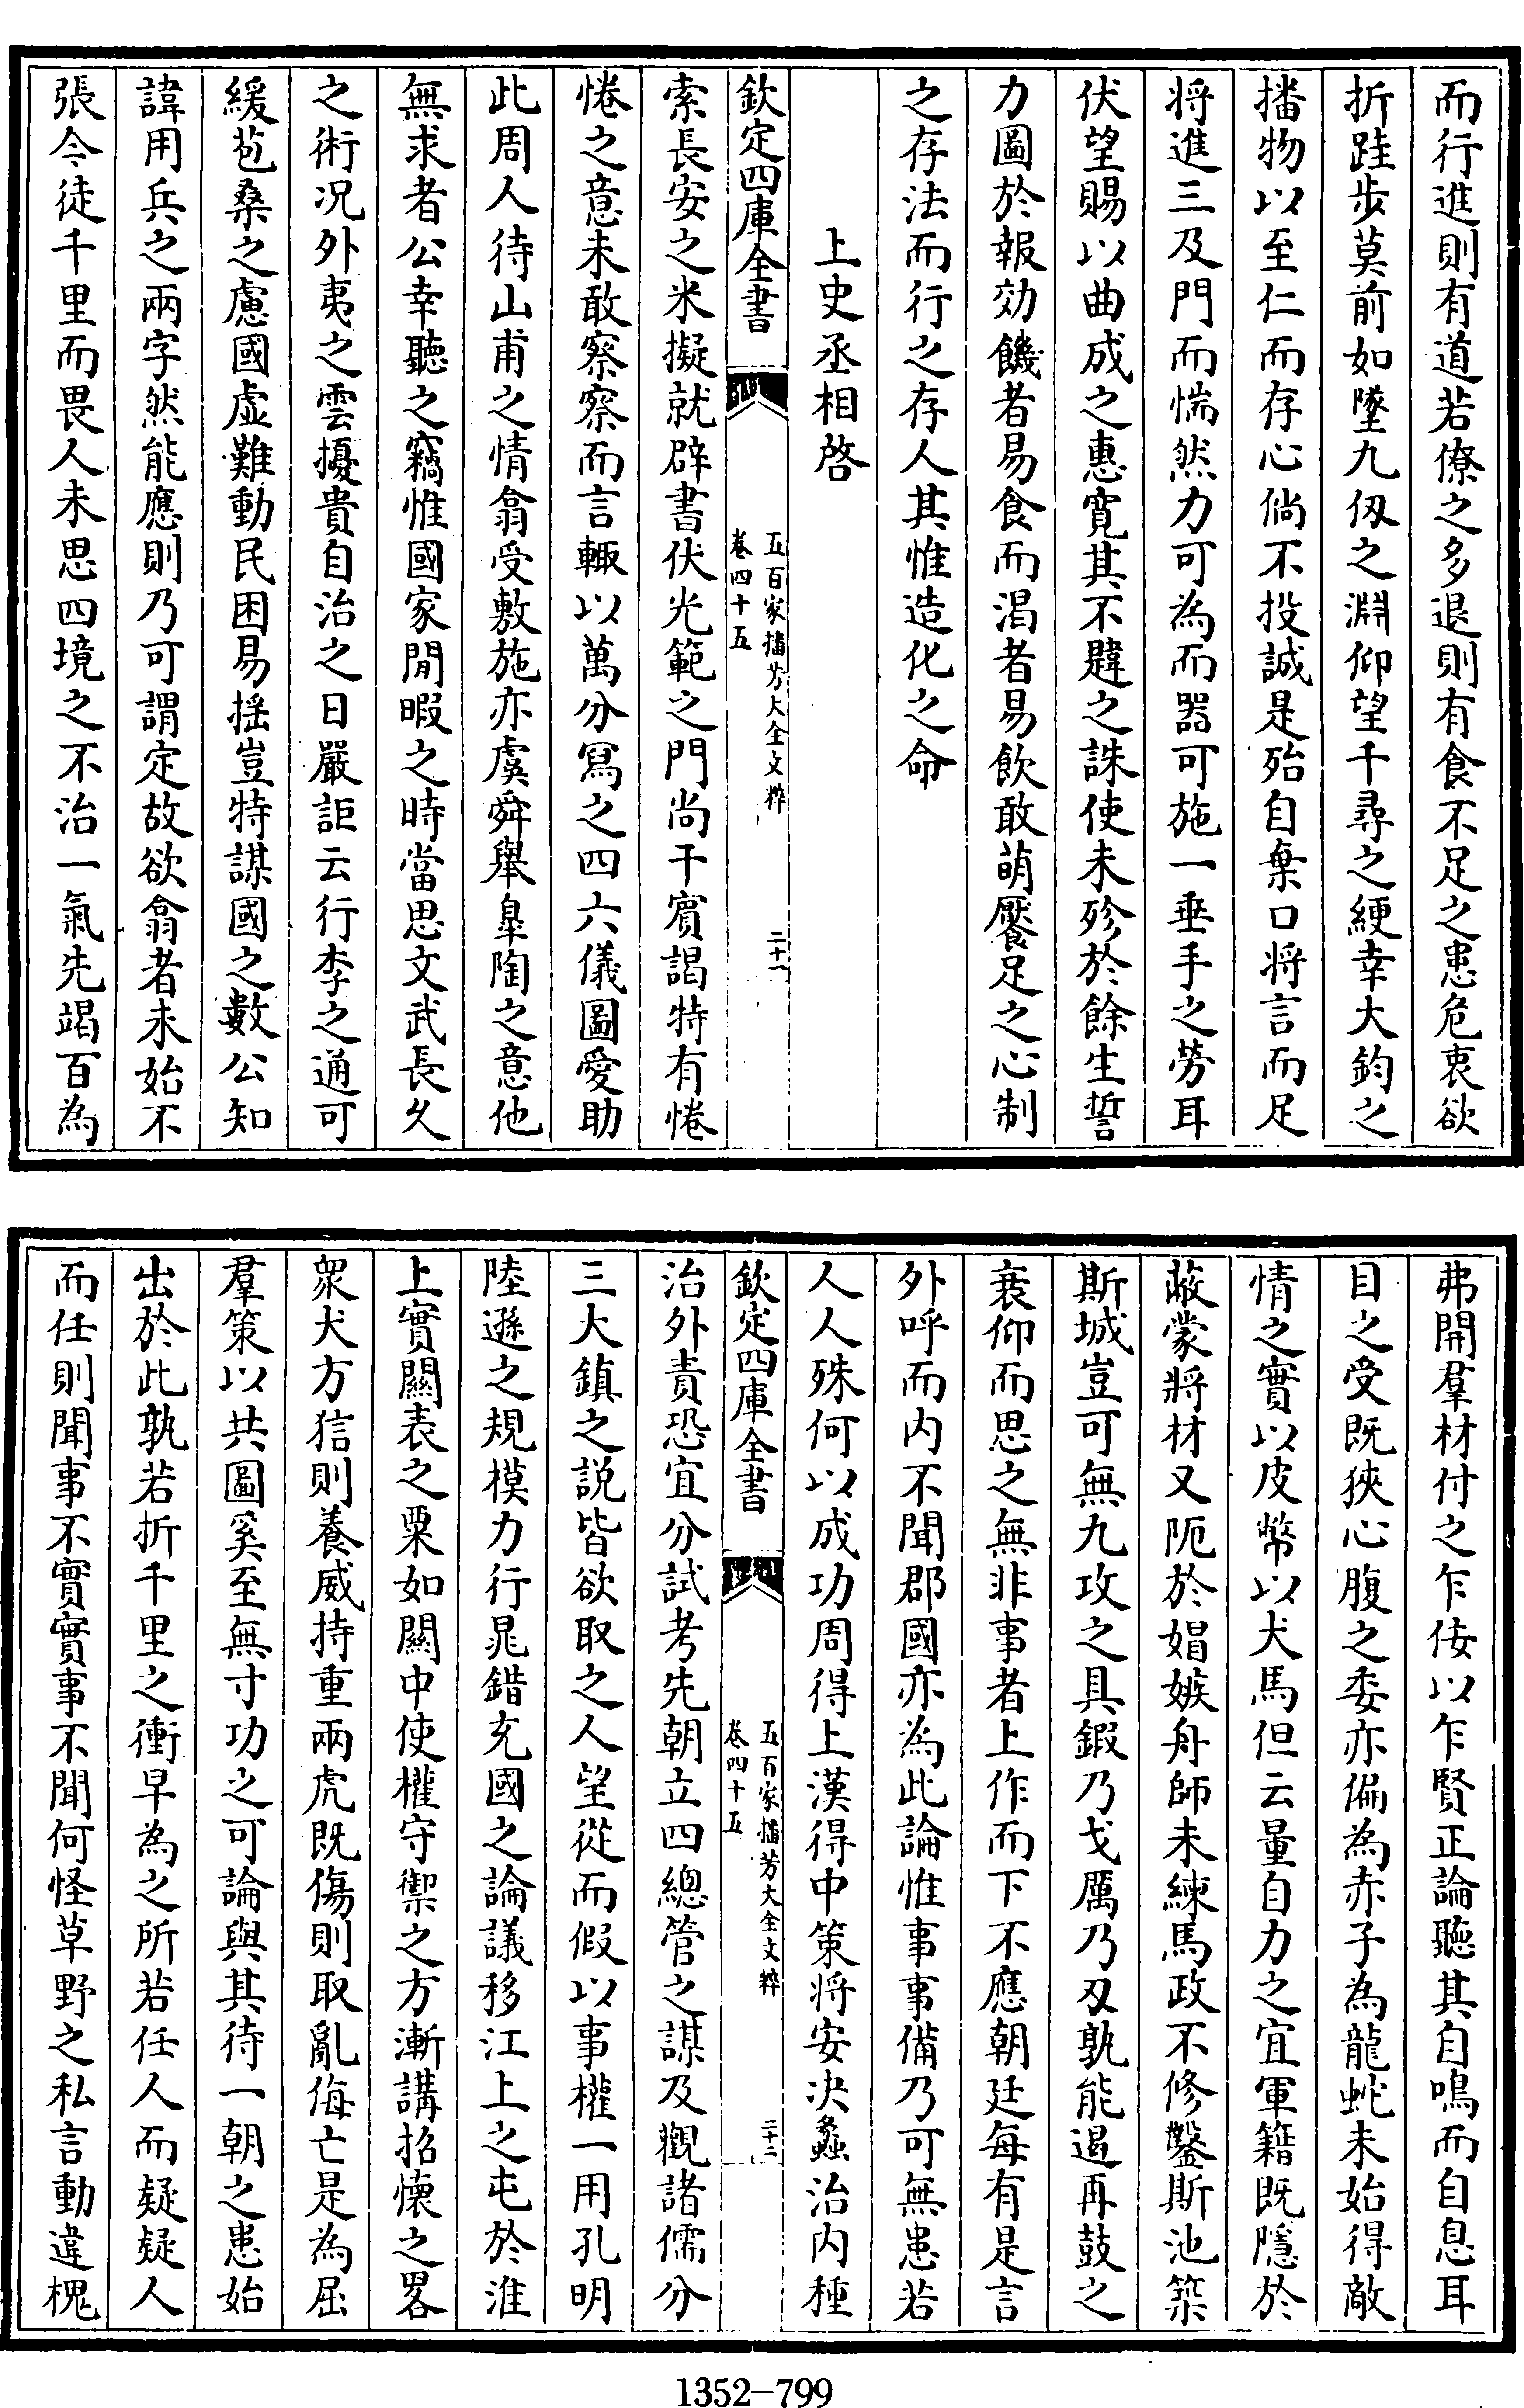 而行進則有道若僚之多退則有食不足之患危衷欲
折跬步莫前如墜九仭之淵仰望千尋之綆幸大鈞之
播物以至仁而存心倘不投誠是殆自棄口將言而足
将進三及門而惴然力可為而器可施一垂手之勞耳
伏望賜以曲成之惠寛其不韙之誅使未殄於餘生誓
力圖於報効饑者易食而渇者易飲敢萌饜足之心制
之存法而行之存人其惟造化之命
上史丞相啓
欽定四庫全書
五百家播芳大全文粹
卷四十五
二十一
索長安之米擬就辟書伏光範之門尚干賓謁特有惓
惓之意未敢察察而言輙以萬分寫之四六儀圖愛助
此周人待山甫之情翕受敷施亦虞舜舉臯陶之意他
無求者公幸聽之竊惟國家閒暇之時當思文武長久
之術况外夷之雲擾貴自治之日嚴詎云行李之通可
緩苞桑之慮國虚難動民困易揺豈特謀國之數公知
諱用兵之兩字然能應則乃可謂定故欲翕者未始不
張今徒千里而畏人未思四境之不治一氣先竭百為
弗開羣材付之乍佞以乍賢正論聽其自鳴而自息耳
目之受既狹心腹之委亦偏為赤子為龍蛇未始得敵
情之實以皮幣以犬馬但云量自力之宜軍籍既隱於
蔽蒙將材又阨於娼嫉舟師未練馬政不修鑿斯池築
斯城豈可無九攻之具鍜乃戈厲乃刄孰能遏再鼓之
衰仰而思之無非事者上作而下不應朝廷每有是言
外呼而内不聞郡國亦為此論惟事事備乃可無患若
人人殊何以成功周得上漢得中策将安决蠡治内種
欽定四庫全書
五百家播芳大全文粹
卷四十五
二十二
治外責恐宜分試考先朝立四總管之謀及觀諸儒分
三大鎮之説皆欲取之人望從而假以事權一用孔明
陸遜之規模力行晁錯充國之論議移江上之屯於淮
上實關表之粟如關中使權守禦之方漸講招懷之畧
衆犬方信則養威持重兩虎既傷則取亂侮亡是為屈
羣策以共圖奚至無寸功之可論與其待一朝之患始
出於此孰若折千里之衝早為之所若任人而疑疑人
而任則聞事不實實事不聞何怪草野之私言動違槐
1352-799